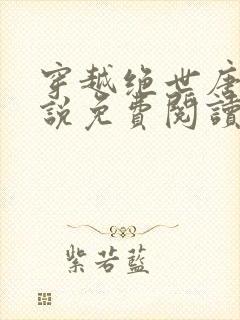 穿越绝世唐
說免費閱讀
紫若藍